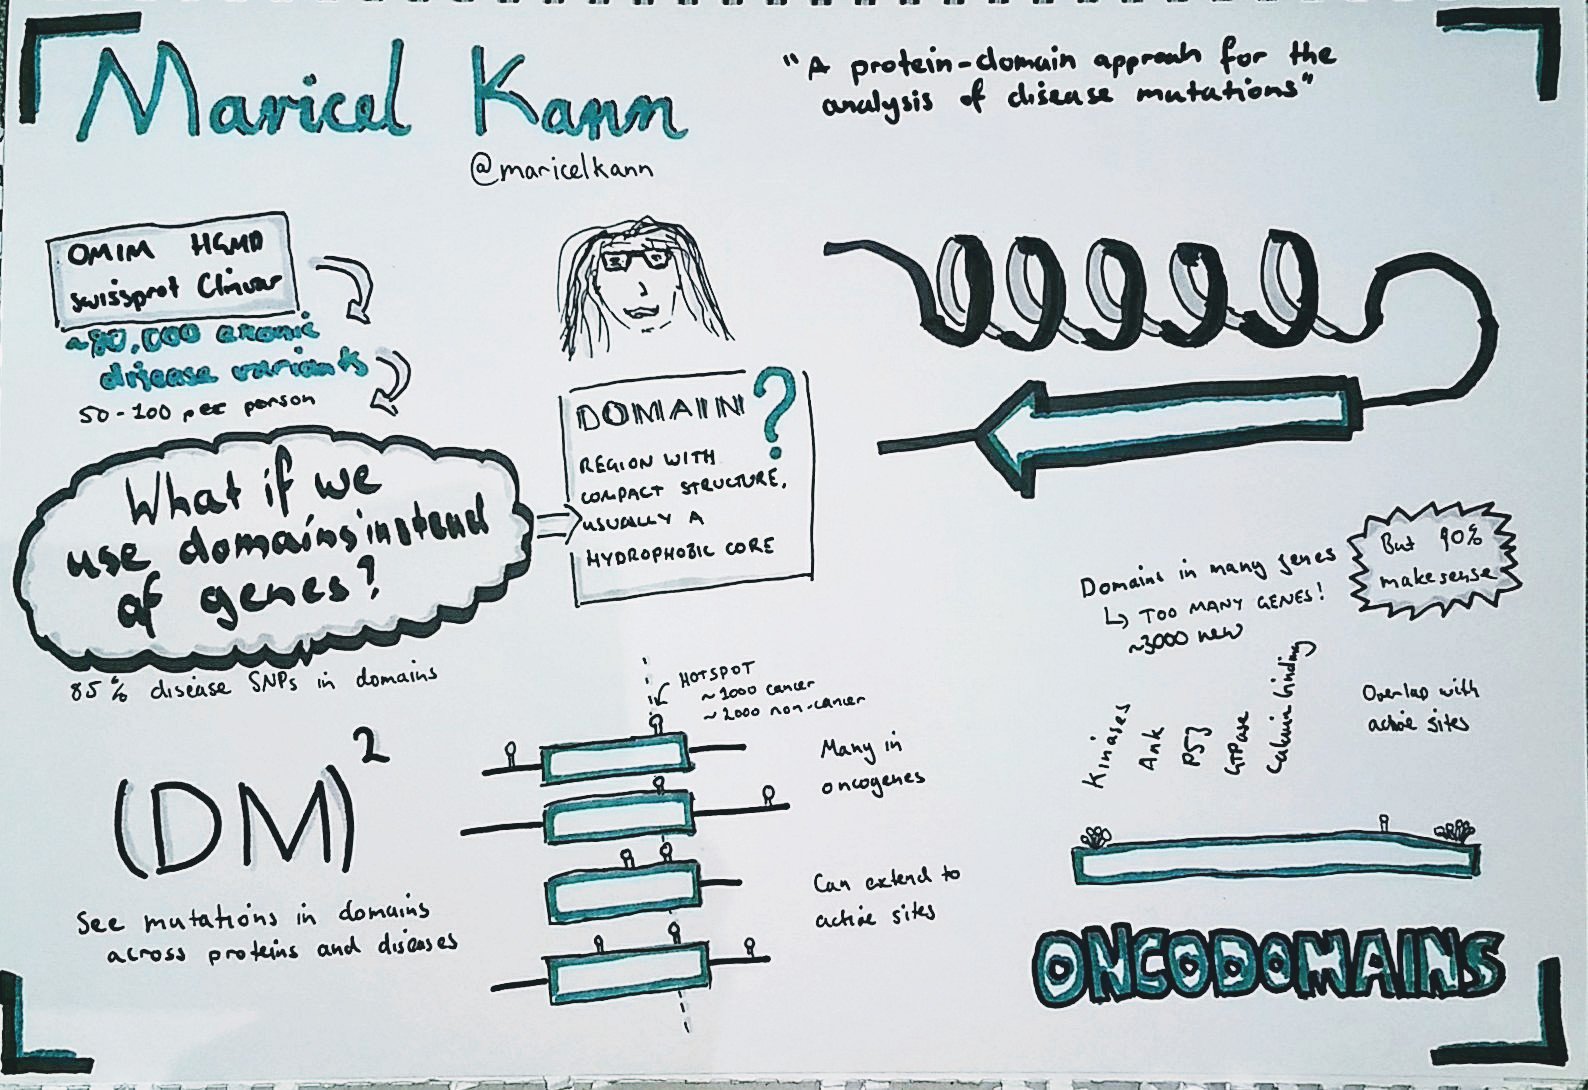 Maricel Kann
@maricelkann
"A protein-domain approah for the
analysis of disease mutations"
OMIM HGMD
Swissprot Clinvar
~80,000 exonic
disease variants
50-100 per person
What if we
use domains instead
of genes?
85% disease SNPs in domains
DOMAIN?
REGION WITH
COMPACT STRUCTURE,
USUALLY A
HYDROPHOBIC CORE
(DM)²
See mutations in domains
across proteins and diseases
HOTSPOT
~1000 cancer
~2000 non-cancer
Many in
oncogenes
Can extend to
active sites
Domains in many genes
↳ TOO MANY GENES!
~3000 new
But 90%
make sense
Kinases
Ank
P53
GTPase
Calcium binding
Overlap with
active sites
ONCODOMAINS